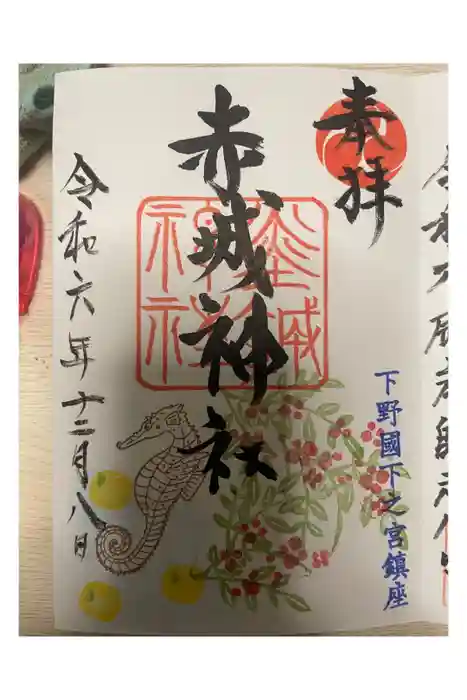 奉拝
赤城神社
赤城
神社
下野國下之宮鎮座
令和六年十二月八日